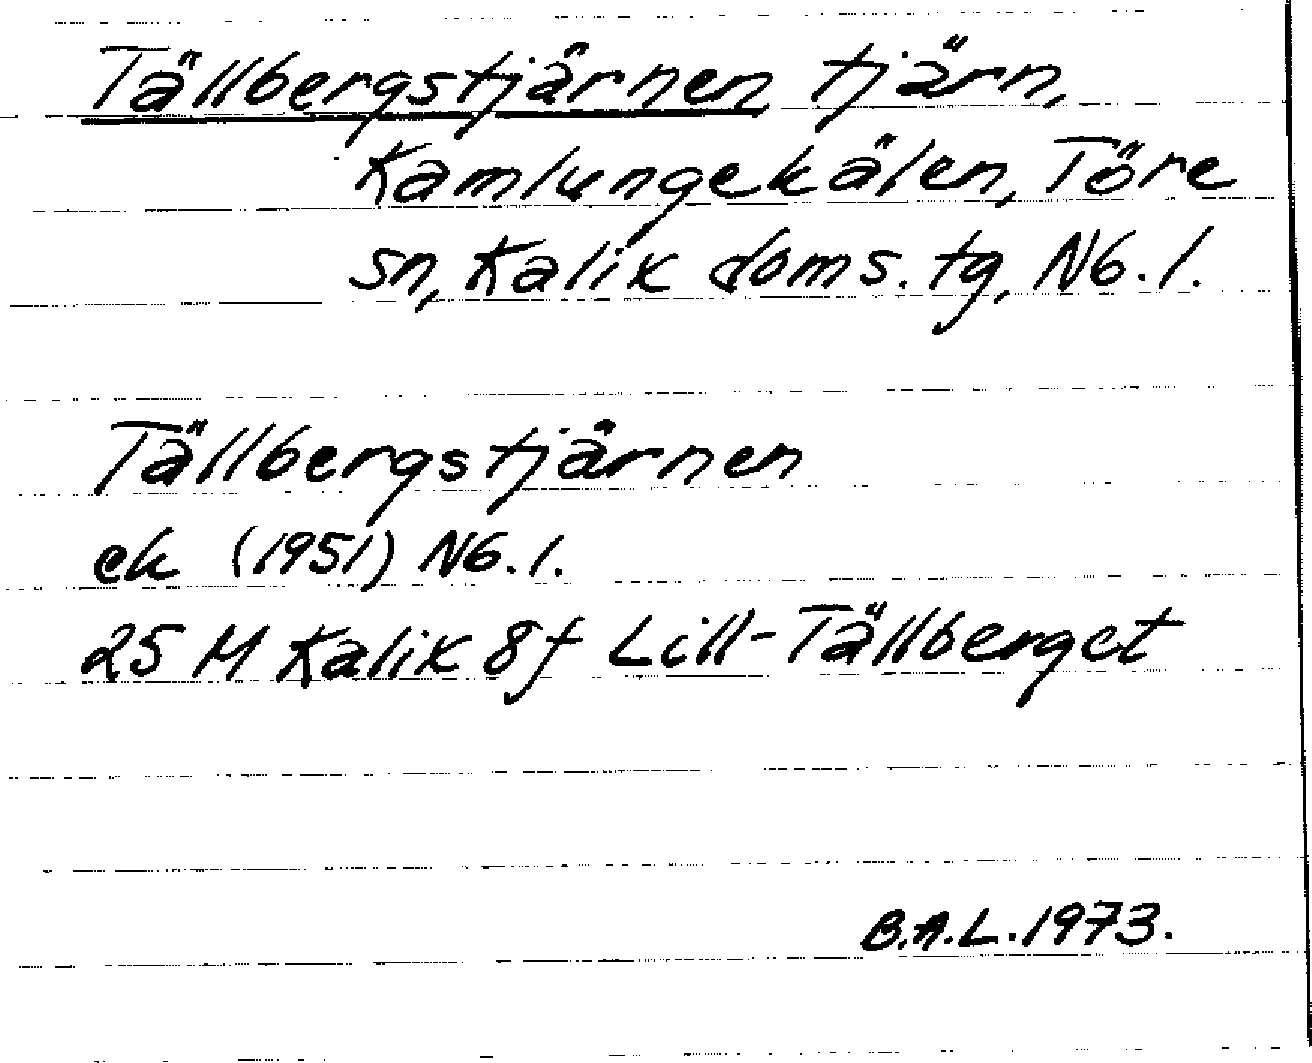 Tällbergstjärnen tjärn,
Kamlungekälen, Töre
sn, Kalix doms. tg, Nb. l.
Tällbergstjärnen
ek (1951) Nb. l.
25 M Kalix 8f Lill-Tällberget
B.A.L. 1973.